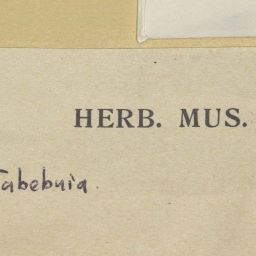 HERB. MUS.
Tabebuia.